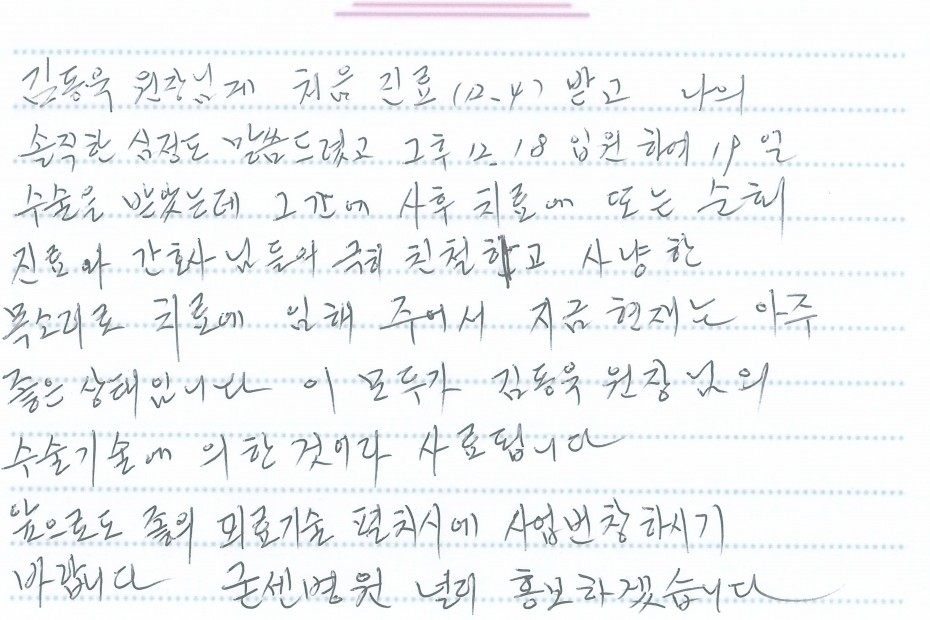 김동욱 원장님게 처음 진료 (12.4) 받고 나의
솔직한 심정도 말씀드렸고 그후 12.18 입원 하에 19일
수술을 받았는데 그간에 사후 치료에 또는 순회
진료와 간호사님들의 극히 친절하고 사냥한
목소리로 치료에 임해 주어서 지금 현재는 아주
좋은 상태입니다 이 모두가 김동욱 원장님의
수술기술에 의한 것이라 사료됩니다
앞으로도 좋의 의료기술 펼치시에 사업번창하시기
바랍니다 굳센병원 널리 홍보하겠습니다